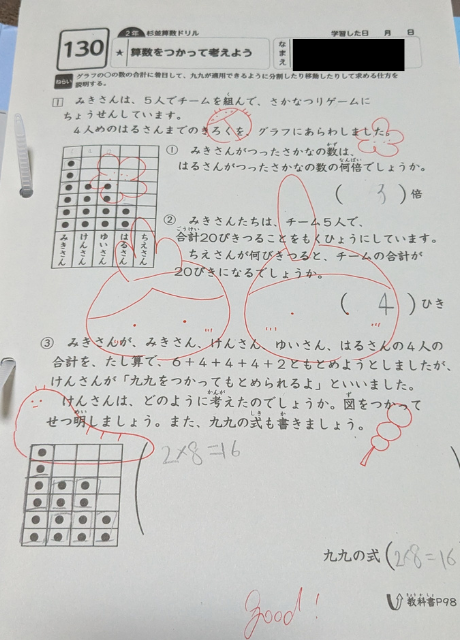 130
2年 杉並算数ドリル
学習した日 月 日
★ 算数をつかって考えよう
なまえ
ねらい グラフの○の数の合計に着目して、九九が適用できるように分割したり移動したりして求める仕方を
説明する。
1 みきさんは、5人でチームを組んで、さかなつりゲームに
ちょうせんしています。
4人めのはるさんまでのきろくを、グラフにあらわしました。
① みきさんがつったさかなの数は、
はるさんがつったさかなの数の何倍でしょうか。
( 3 )倍
みきさん けんさん ゆいさん はるさん ちえさん
② みきさんたちは、チーム5人で、
合計20ぴきつることをもくひょうにしています。
ちえさんが何びきつると、チームの合計が
20ぴきになるでしょうか。
( 4 )ひき
③ みきさんが、みきさん、けんさん、ゆいさん、はるさんの4人の
合計を、たし算で、6+4+4+4+2ともとめようとしましたが、
けんさんが「九九をつかってもとめられるよ」といいました。
けんさんは、どのように考えたのでしょうか。図をつかって
せつ明しましょう。また、九九の式も書きましょう。
2×8=16
九九の式(2×8=16
教科書P98
good!